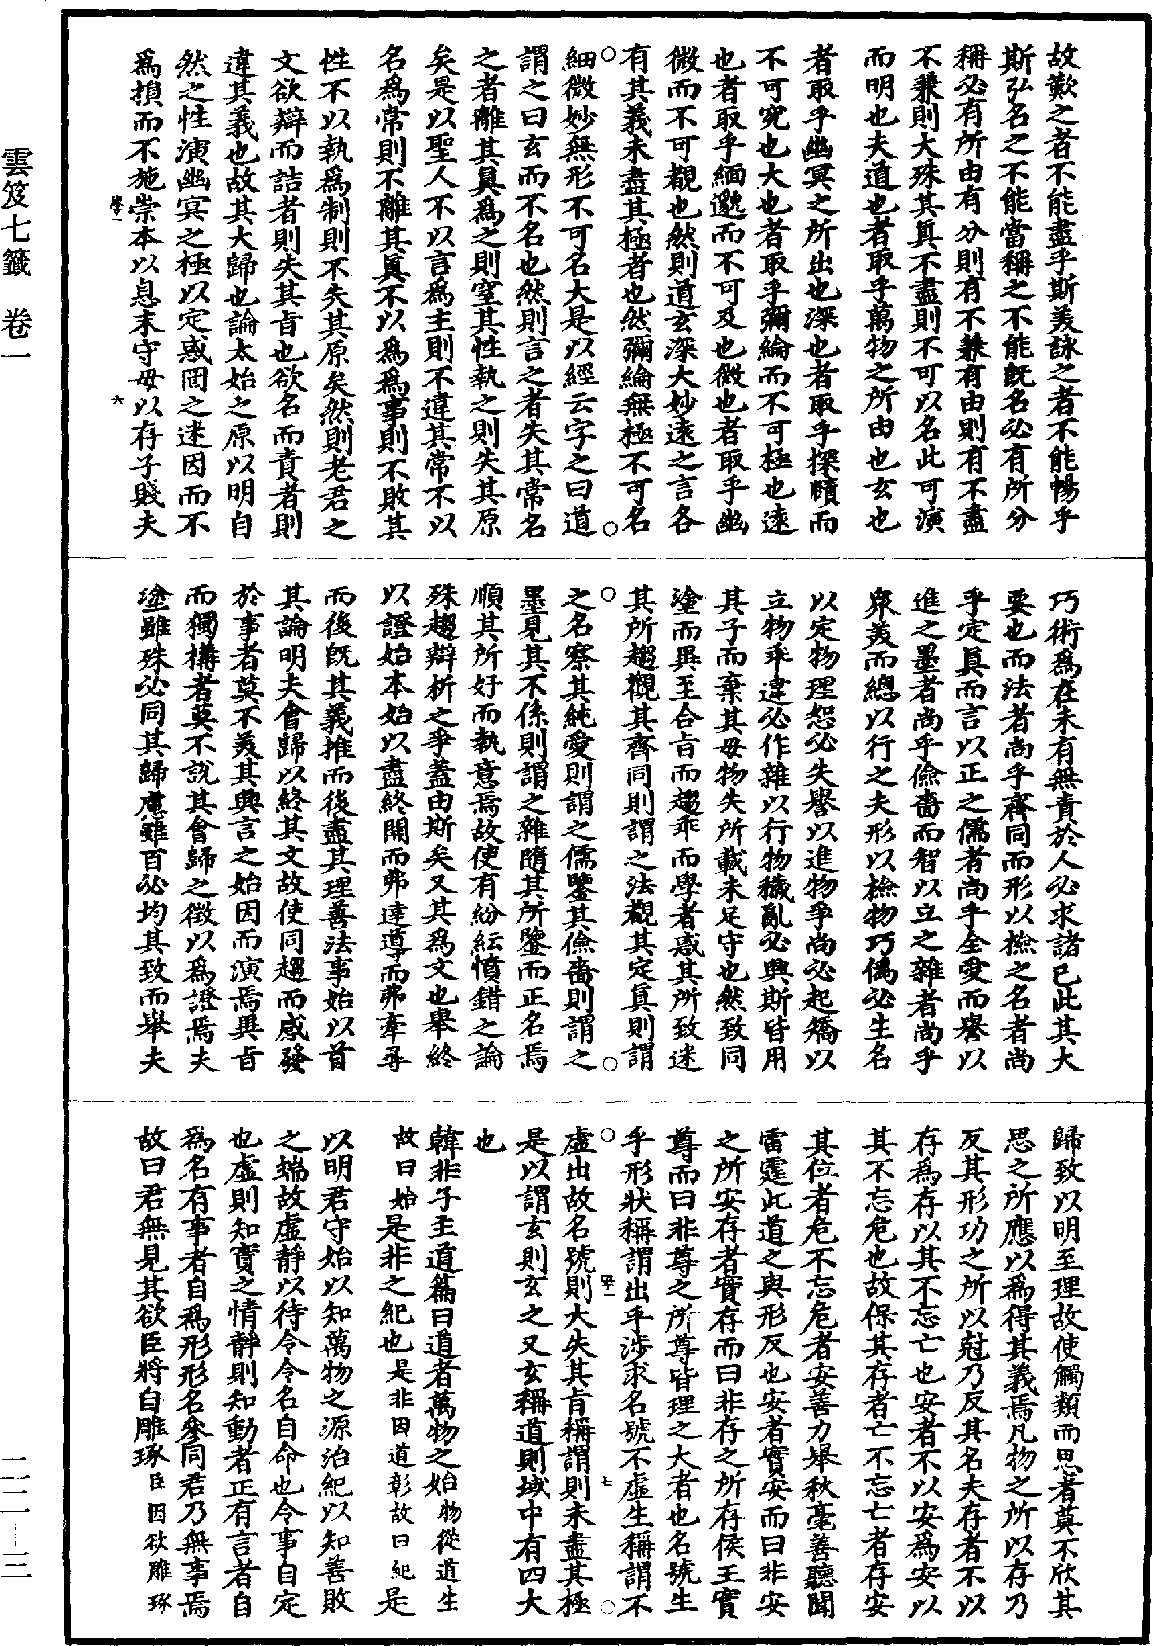 故歎之者不能盡乎斯美詠之者不能暢乎
斯弘名之不能當稱之不能旣名必有所分
稱必有所由有分則有不兼有由則有不盡
不兼則大殊其眞不盡則不可以名此可演
而明也夫道也者取乎萬物之所由也玄也
者取乎幽冥之所出也深也者取乎探賾而
不可究也大也者取乎彌綸而不可極也遠
也者取乎緬邈而不可及也微也者取乎幽
微而不可覩也然則道玄深大妙遠之言各
有其義未盡其極者也然彌綸無極不可名
細微妙無形不可名大是以經云字之曰道
謂之曰玄而不名也然則言之者失其常名
之者離其眞爲之則窒其性執之則失其原
矣是以聖人不以言爲主則不違其常不以
名爲常則不離其眞不以爲爲事則不敗其
性不以執爲制則不失其原矣然則老君之
文欲辯而詰者則失其旨也欲名而責者則
違其義也故其大歸也論太始之原以明自
然之性演幽冥之極以定惑罔之迷因而不
爲損而不施崇本以息末守母以存子賤夫
學一
六
巧術爲在未有無責於人必求諸已此其大
要也而法者尚乎齊同而形以撿之名者尚
乎定眞而言以正之儒者尚乎全愛而譽以
進之墨者尚乎儉嗇而智以立之雜者尚乎
衆美而總以行之夫形以撿物巧僞必生名
以定物理怨必失譽以進物爭尚必起矯以
立物乖違必作雜以行物穢亂必興斯皆用
其子而棄其母物失所載未足守也然致同
塗而異至合旨而趨乖而學者惑其所致迷
其所趨觀其齊同則謂之法觀其定眞則謂
之名察其純愛則謂之儒鑒其儉嗇則謂之
墨見其不係則謂之雜隨其所鑒而正名焉
順其所好而執意焉故使有紛紜憤錯之論
殊趨辯析之爭蓋由斯矣又其爲文也舉終
以證始本始以盡終開而弗達導而弗牽尋
而後旣其義推而後盡其理善法事始以首
其論明夫會歸以終其文故使同趨而感發
於事者莫不美其興言之始因而演焉異旨
而獨構者莫不說其會歸之徵以爲證焉夫
塗雖殊必同其歸慮雖百必均其致而舉夫
歸致以明至理故使觸類而思者莫不欣其
思之所應以爲得其義焉凡物之所以存乃
反其形功之所以尅乃反其名夫存者不以
存爲存以其不忘亡也安者不以安爲安以
其不忘危也故保其存者亡不忘亡者存安
其位者危不忘危者安善力舉秋毫善聽聞
雷霆此道之與形反也安者實安而曰非安
之所安存者實存而曰非存之所存侯王實
尊而曰非尊之所尊皆理之大者也名號生
乎形狀稱謂出乎涉求名號不虛生稱謂不
學一
七
虛出故名號則大失其旨稱謂則未盡其極
是以謂玄則玄之又玄稱道則域中有四大
也
韓非子主道篇曰道者萬物之始物從道生
故曰始是非之紀也是非因道彰故曰紀是
以明君守始以知萬物之源治紀以知善敗
之端故虛靜以待令令名自命也令事自定
也虛則知實之情靜則知動者正有言者自
爲名有事者自爲形形名參同君乃無事焉
故曰君無見其欲臣將自雕琢臣因欲雕琢
雲笈七籤 卷一
二二–三